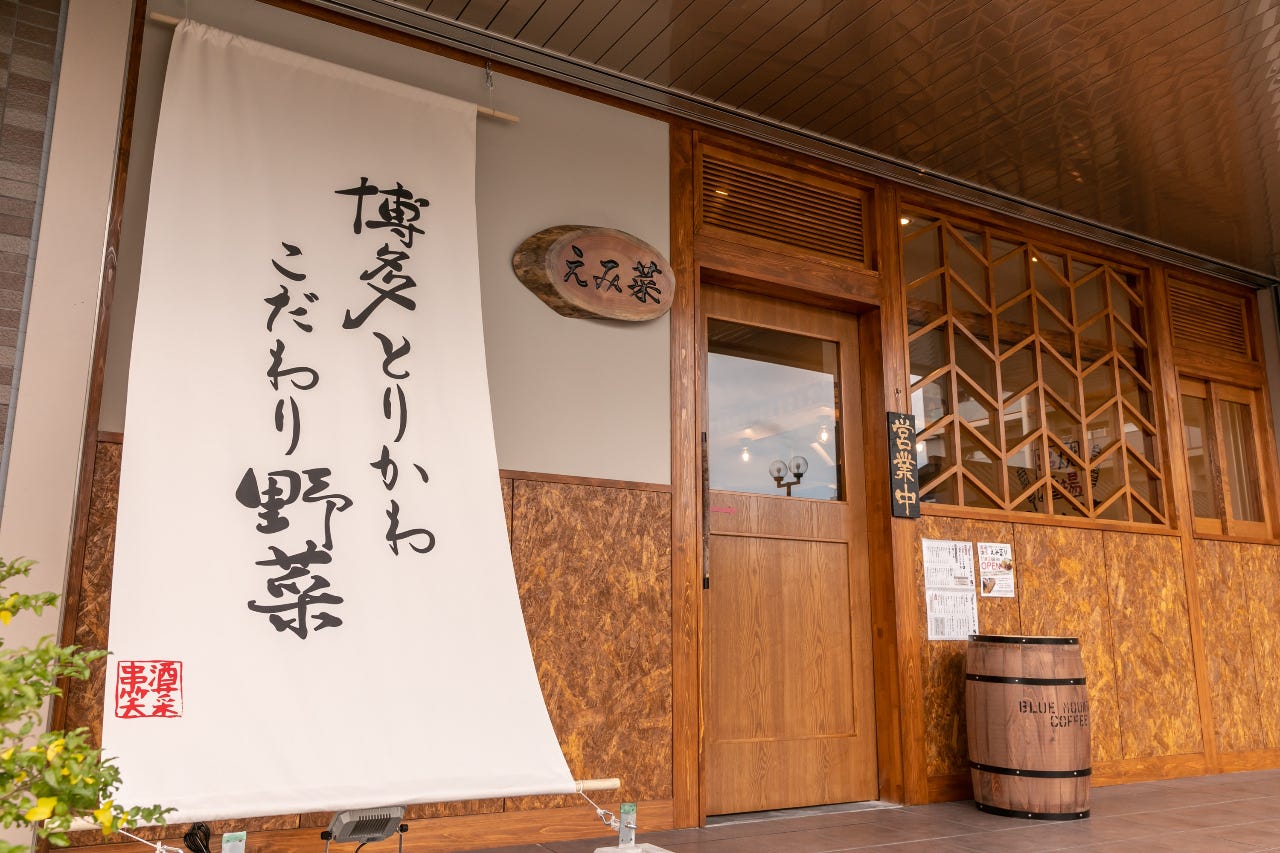 博多とりかわ
こだわり野菜
酒采
串笑
えみ菜
営業中
OPEN
BLUE MOUN
COFFEE